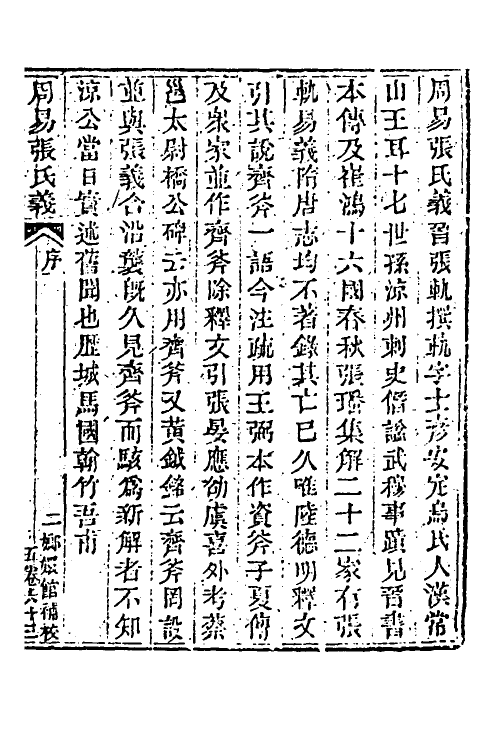 周易張氏義晉張軌撰軌字士彥安定烏氏人漢常
山王耳十七世孫涼州刺史僭謚武穆事蹟見晉書
本傳及崔鴻十六國春秋張璠集解二十二家有張
軌易義隋唐志均不著錄其亡巳久唯陸德明釋文
引其說齊斧一語今注疏用王弼本作資斧子夏傳
及眾家並作齊斧除釋文引張晏應劭虞喜外考蔡
邕太尉橋公碑云亦用齊斧又黃鉞銘云齊斧罔設
並與張義合沿襲旣久見齊斧而駭為新解者不知
涼公當日實述舊聞也歷城馬國翰竹吾甫
周易張氏義
序
二
嫏嬛館補校